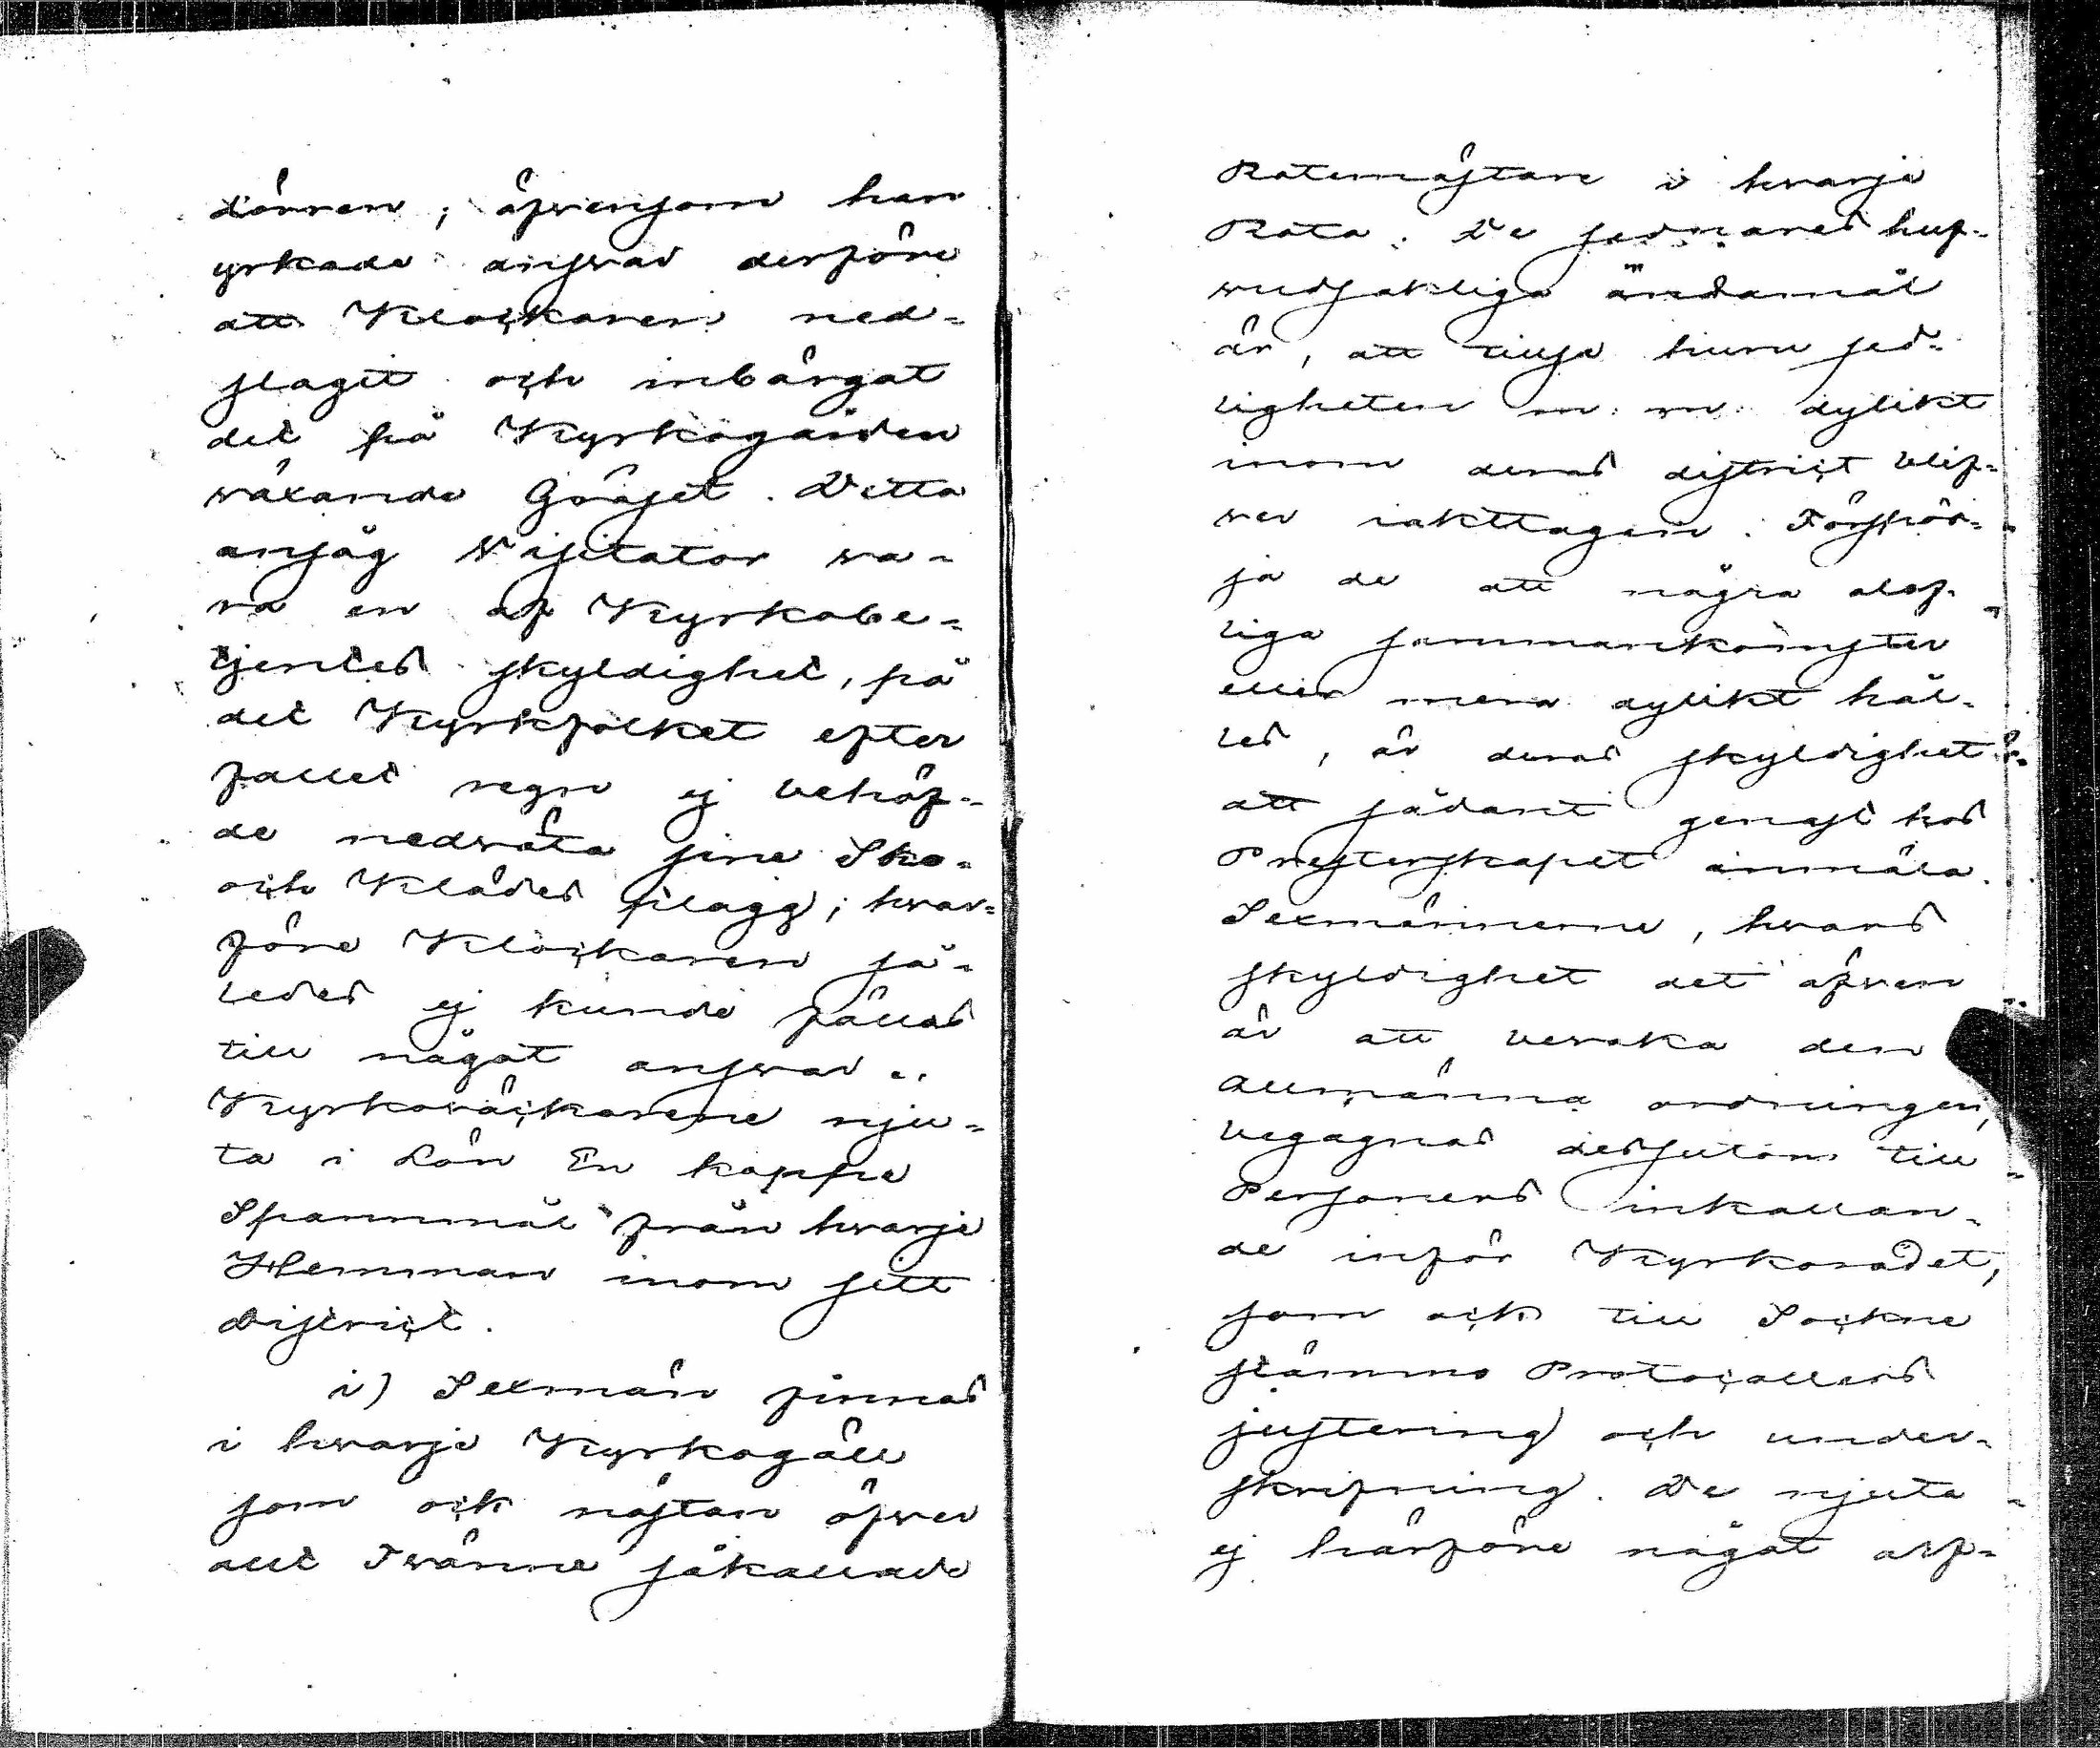 dörren; äfvensom han
yrkade answar derföre
att Klockaren ned-
slagit och inbärgat
det på Kyrkogården
wäxande Gräset. Detta
ansåg Visitator wa-
ra en af Kyrkobe-
tjentes skyldighet, på
det Kyrkfolket efter
fallet regn ej behöf-
de nedwäta sine Sko-
och Klädes plagg; hvar-
före Klockaren så-
ledes ej kunde fällas
till något answar.
Kyrkowäckarene nju-
ta i Lön En kappe
Spannmål från hvarje
Hemman inom sitt
District.
i) Sexmän finnas
i hvarje Kyrkogäll
som ock nästan öfwer
allt Twänne såkallade
Rotemästare i hvarje
Rota. De sednares huf-
wudsakliga ändamål
är, att tillse huru sed-
ligheten m: m: dylikt
inom deras district blif-
wer iakttagen. Förspör-
ja de att några olof-
liga sammankomster
eller mera dylikt hål-
les, är deras skyldighet
att sådant genast hos
Presterskapet anmäla.
Sexmännerne, hvars
skyldighet det äfwen
är att bewaka den
allmänna ordningen,
begagnas dessutom till
Personers inkallan-
de inför Kyrkorådet,
som ock till Sockne
stämmo Protocollers
justering och under-
skrifning. De njuta
ej härföre något arf-